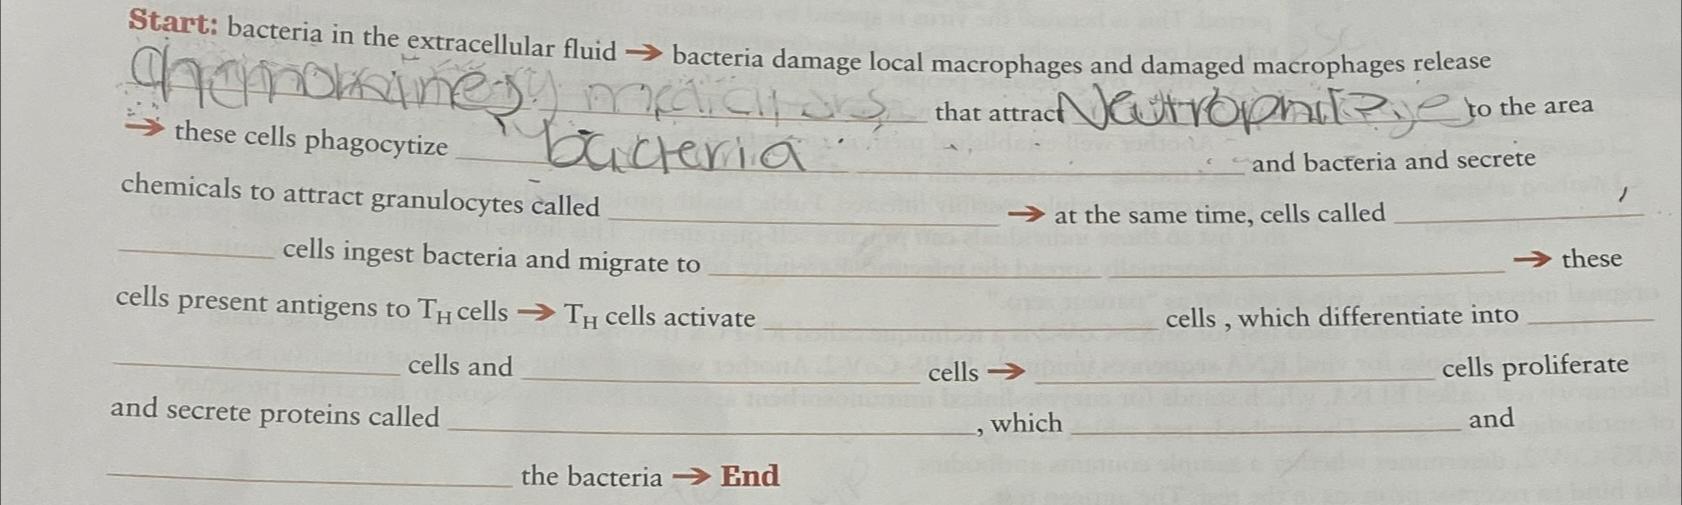 Start: bacteria in the extracellular fluid → bacteria damage local macrophages and damaged macrophages release
that attract to the area
→ these cells phagocytize bacteria and bacteria and secrete
chemicals to attract granulocytes called → at the same time, cells called
cells ingest bacteria and migrate to → these
cells present antigens to TH cells → TH cells activate cells , which differentiate into
cells and cells → cells proliferate
and secrete proteins called , which and
the bacteria → End